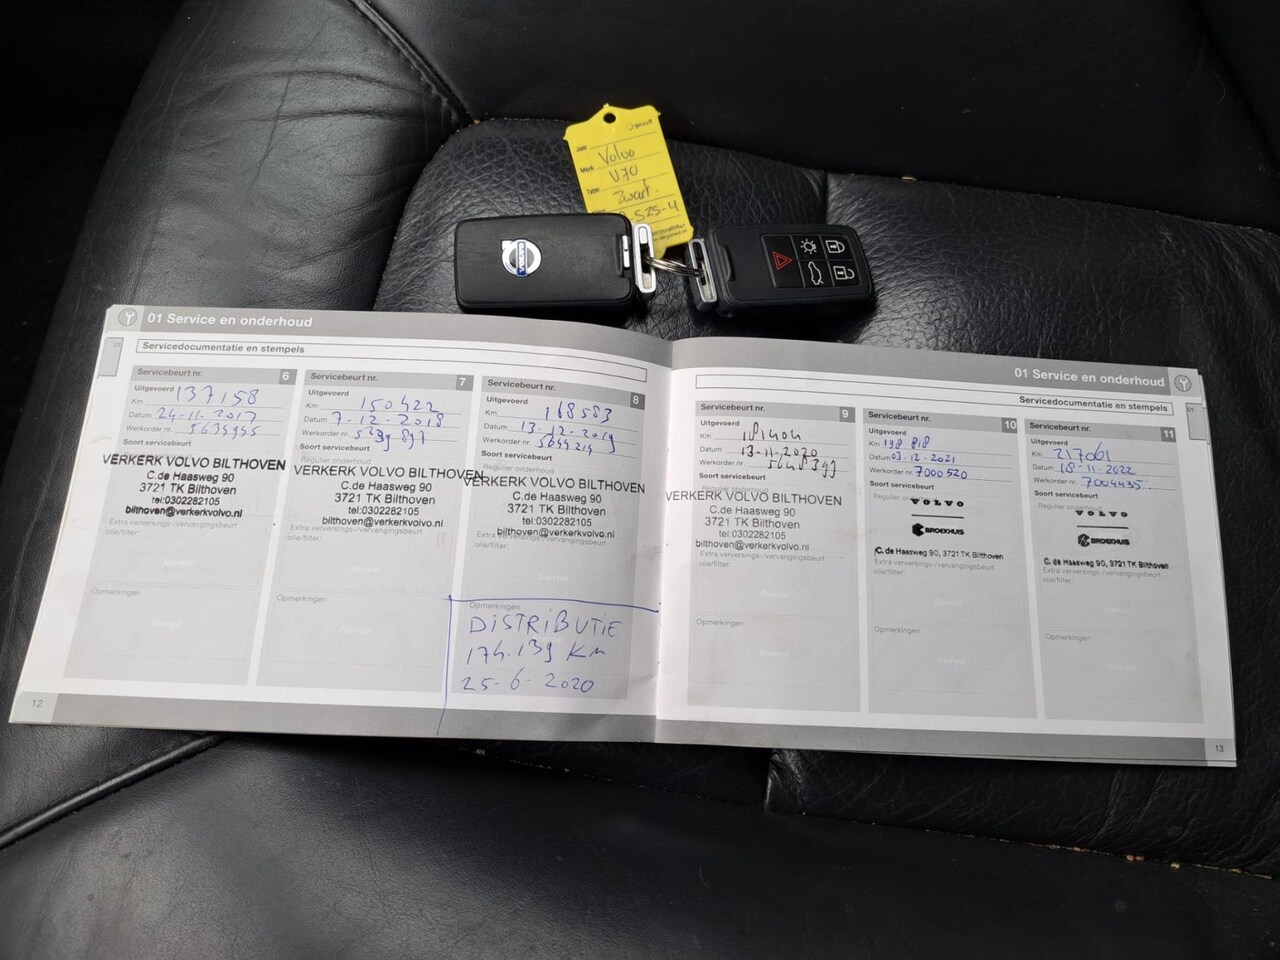 Jaar
Merk Volvo
V70
Type
Zwart.
-SZS-4
VOLVO
01 Service en onderhoud
01
Servicedocumentatie en stempels
Servicebeurt nr. 6
Uitgevoerd
Km 137158
Datum 24-11-2017
Werkorder nr. 5634945
Soort servicebeurt
VERKERK VOLVO BILTHOVEN
C.de Haasweg 90
3721 TK Bilthoven
tel:0302282105
bilthoven@verkerkvolvo.nl
Extra verversings-/vervangingsbeurt
olie/filter:
Stempel
Opmerkingen
Stempel
12
Servicebeurt nr. 7
Uitgevoerd
Km 150422
Datum 7-12-2018
Werkorder nr. 5639897
Soort servicebeurt
Regulier onderhoud
VERKERK VOLVO BILTHOVEN
C.de Haasweg 90
3721 TK Bilthoven
tel:0302282105
bilthoven@verkerkvolvo.nl
Extra verversings-/vervangingsbeurt
olie/filter:
Opmerkingen
Stempel
Servicebeurt nr. 8
Uitgevoerd
Km 168583
Datum 13-12-2019
Werkorder nr. 5644214
Soort servicebeurt
Regulier onderhoud
VERKERK VOLVO BILTHOVEN
C.de Haasweg 90
3721 TK Bilthoven
tel:0302282105
bilthoven@verkerkvolvo.nl
Extra verversings-/vervangingsbeurt
olie/filter:
Stempel
Opmerkingen
DISTRIBUTIE
174.139 KM
25-6-2020
01 Service en onderhoud
01
Servicedocumentatie en stempels
Servicebeurt nr. 9
Uitgevoerd
Km 181404
Datum 13-11-2020
Werkorder nr. 5648399
Soort servicebeurt
Regulier onderhoud
VERKERK VOLVO BILTHOVEN
C.de Haasweg 90
3721 TK Bilthoven
tel:0302282105
bilthoven@verkerkvolvo.nl
Extra verversings-/vervangingsbeurt
olie/filter:
Stempel
Opmerkingen
Stempel
Servicebeurt nr. 10
Uitgevoerd
Km 198 818
Datum 03-12-2021
Werkorder nr. 7000520
Soort servicebeurt
Regulier
VOLVO
BROEKHUIS
C. de Haasweg 90, 3721 TK Bilthoven
Extra verversings-/vervangingsbeurt
olie/filter:
Stempel
Opmerkingen
Stempel
Servicebeurt nr. 11
Uitgevoerd
Km 217061
Datum 18-11-2022
Werkorder nr. 7004435
Soort servicebeurt
Regulier onderhoud
VOLVO
BROEKHUIS
C. de Haasweg 90, 3721 TK Bilthoven
Extra verversings-/vervangingsbeurt
olie/filter:
Stempel
Opmerkingen
Stempel
13